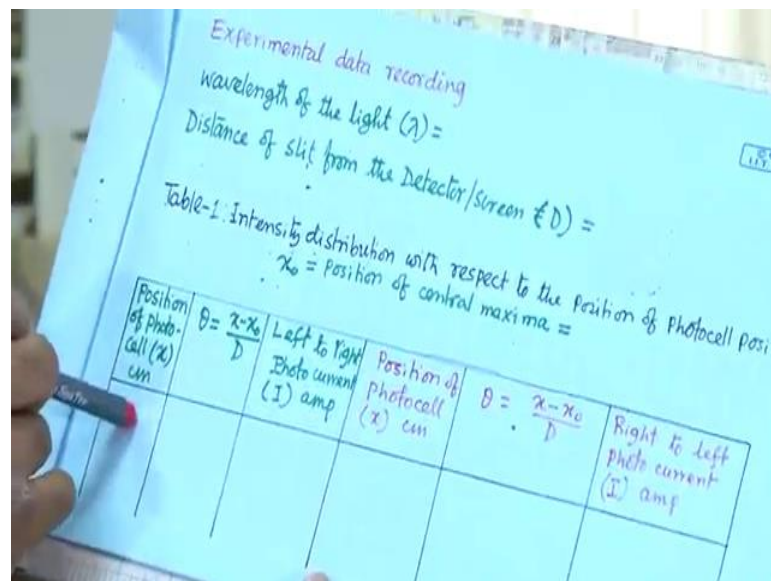 Experimental data recording
Wavelength of the light (λ) =
Distance of slit from the Detector/Screen (D) =
Table-1: Intensity distribution with respect to the Position of Photocell posi
x₀ = Position of central maxima =
Position of Photo-cell (x) cm
θ = x-x₀/D
Left to right Photo current (I) amp
Position of Photocell (x) cm
θ = x-x₀/D
Right to left Photo current (I) amp